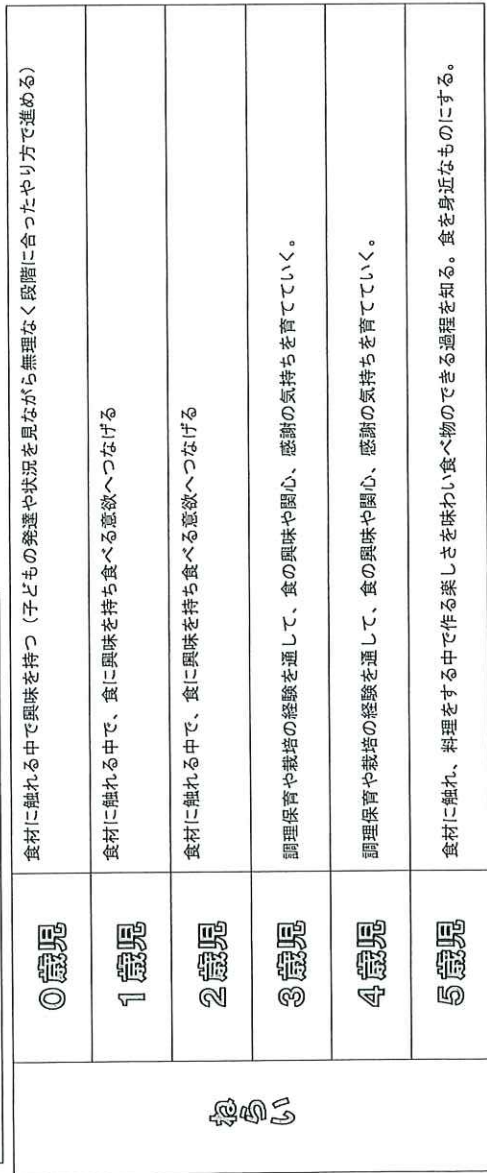 ねらい
0歳児
食材に触れる中で興味を持つ（子どもの発達や状況を見ながら無理なく段階に合ったやり方で進める）
1歳児
食材に触れる中で、食に興味を持ち食べる意欲へつなげる
2歳児
食材に触れる中で、食に興味を持ち食べる意欲へつなげる
3歳児
調理保育や栽培の経験を通して、食の興味や関心、感謝の気持ちを育てていく。
4歳児
調理保育や栽培の経験を通して、食の興味や関心、感謝の気持ちを育てていく。
5歳児
食材に触れ、料理をする中で作る楽しさを味わい食べ物のできる過程を知る。食を身近なものにする。